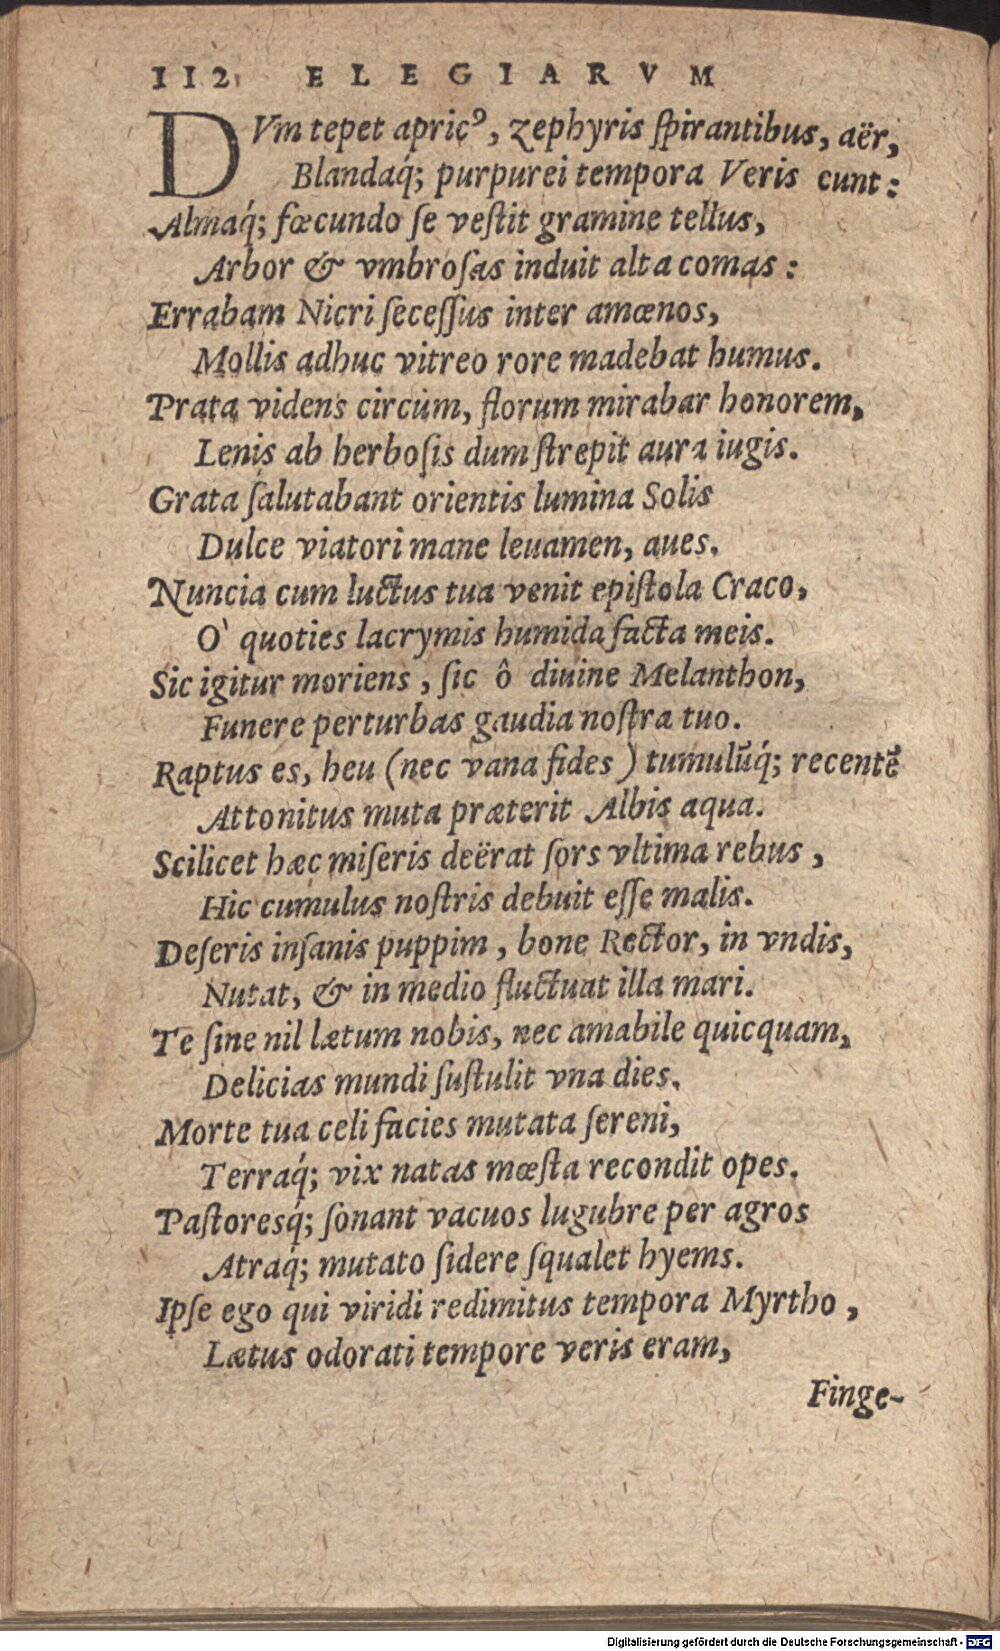 112 ELEGIARVM
DVm tepet apricꝰ, zephyris ſpirantibus, aër,
Blandaq́; purpurei tempora Veris eunt:
Almaq́; fœcundo ſe veſtit gramine tellus,
Arbor & vmbroſas induit alta comas:
Errabam Nicri ſeceſſus inter amœnos,
Mollis adhuc vitreo rore madebat humus.
Prata videns circùm, florum mirabar honorem,
Lenis ab herboſis dum ſtrepit aura iugis.
Grata ſalutabant orientis lumina Solis
Dulce viatori mane leuamen, aues.
Nuncia cum luctus tua venit epiſtola Craco,
O' quoties lacrymis humida facta meis.
Sic igitur moriens, ſic ô diuine Melanthon,
Funere perturbas gaudia noſtra tuo.
Raptus es, heu (nec vana fides) tumulū́q; recentē
Attonitus muta præterit Albis aqua.
Scilicet hæc miſeris deërat ſors vltima rebus,
Hic cumulus noſtris debuit eſſe malis.
Deſeris inſanis puppim, bone Rector, in vndis,
Nutat, & in medio fluctuat illa mari.
Te ſine nil lætum nobis, nec amabile quicquam,
Delicias mundi ſuſtulit vna dies.
Morte tua celi facies mutata ſereni,
Terraq́; vix natas mœſta recondit opes.
Paſtoresq́; ſonant vacuos lugubre per agros
Atraq́; mutato ſidere ſqualet hyems.
Ipſe ego qui viridi redimitus tempora Myrtho,
Lætus odorati tempore veris eram,
Finge-
Digitalisierung gefördert durch die Deutsche Forschungsgemeinschaft - DFG